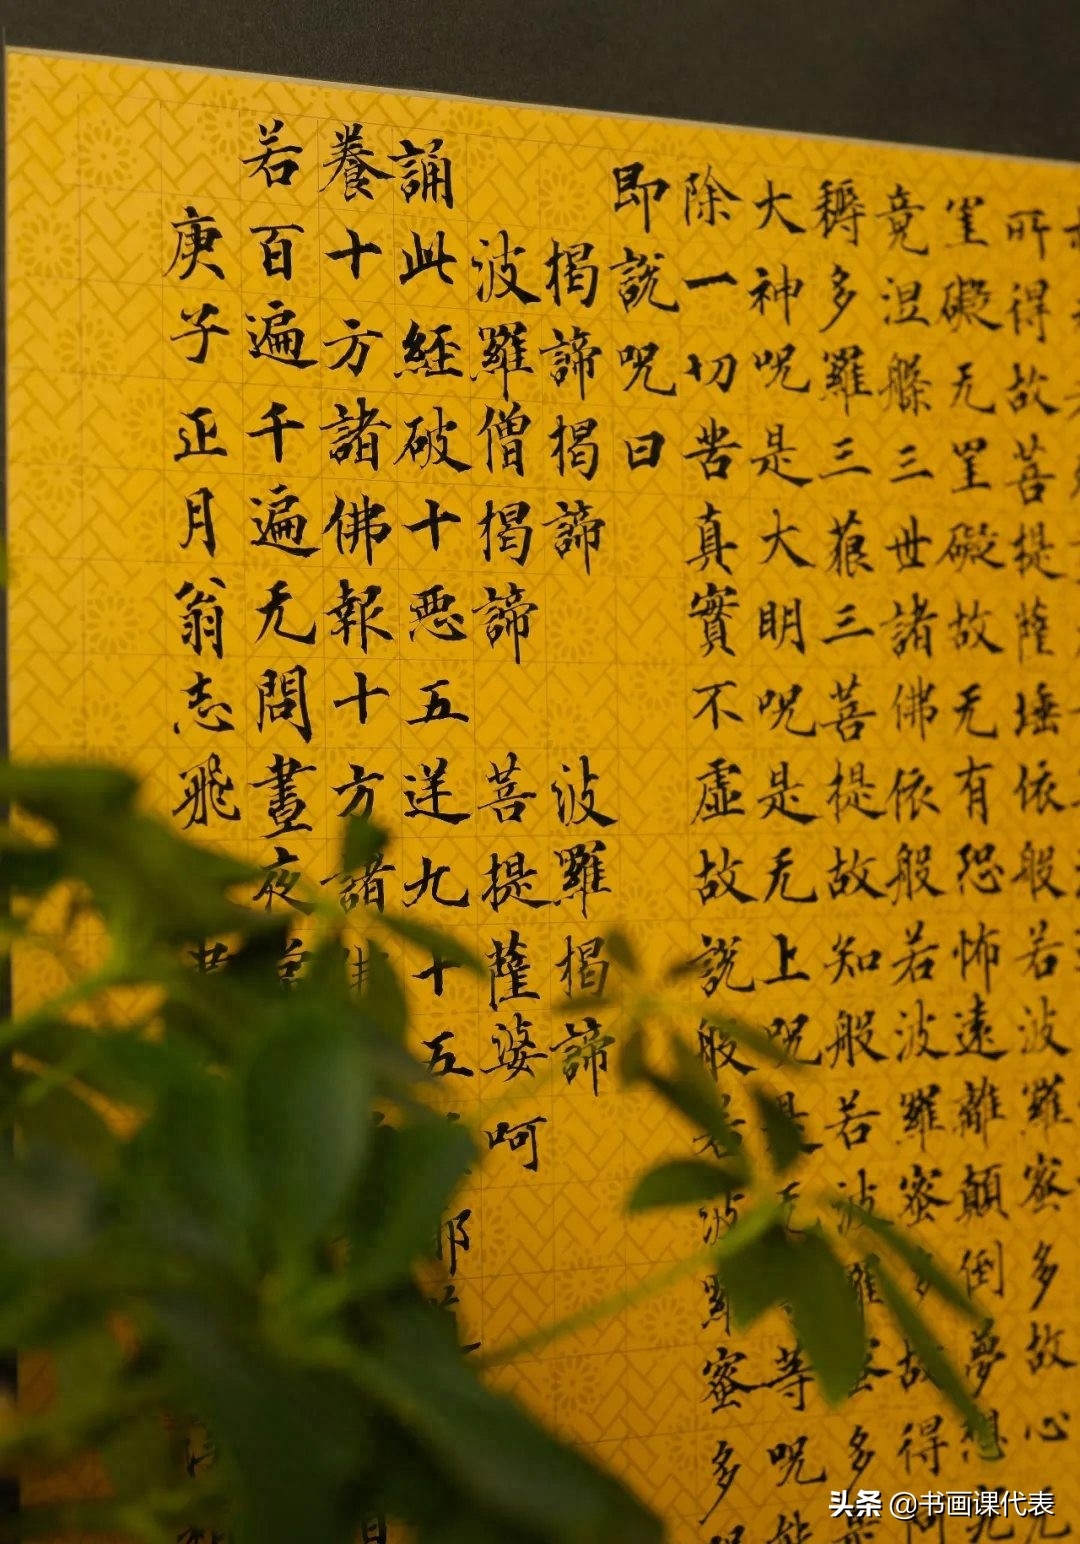 所得故菩提薩埵依般若波羅蜜多故心无
罣礙无罣礙故无有恐怖遠離顛倒夢想
竟涅槃三世諸佛依般若波羅蜜多故得
耨多羅三藐三菩提故知般若波羅蜜多是
大神呪是大明呪是无上呪是无等呪能
除一切苦真實不虛故說般若波羅蜜多
即說呪曰
揭諦揭諦 波羅揭諦
波羅僧揭諦 菩提薩婆呵
誦此經破十惡五逆九十五
養十方諸佛報十方諸
若百遍千遍无問晝夜
庚子正月翁志飛
头条 @书画课代表